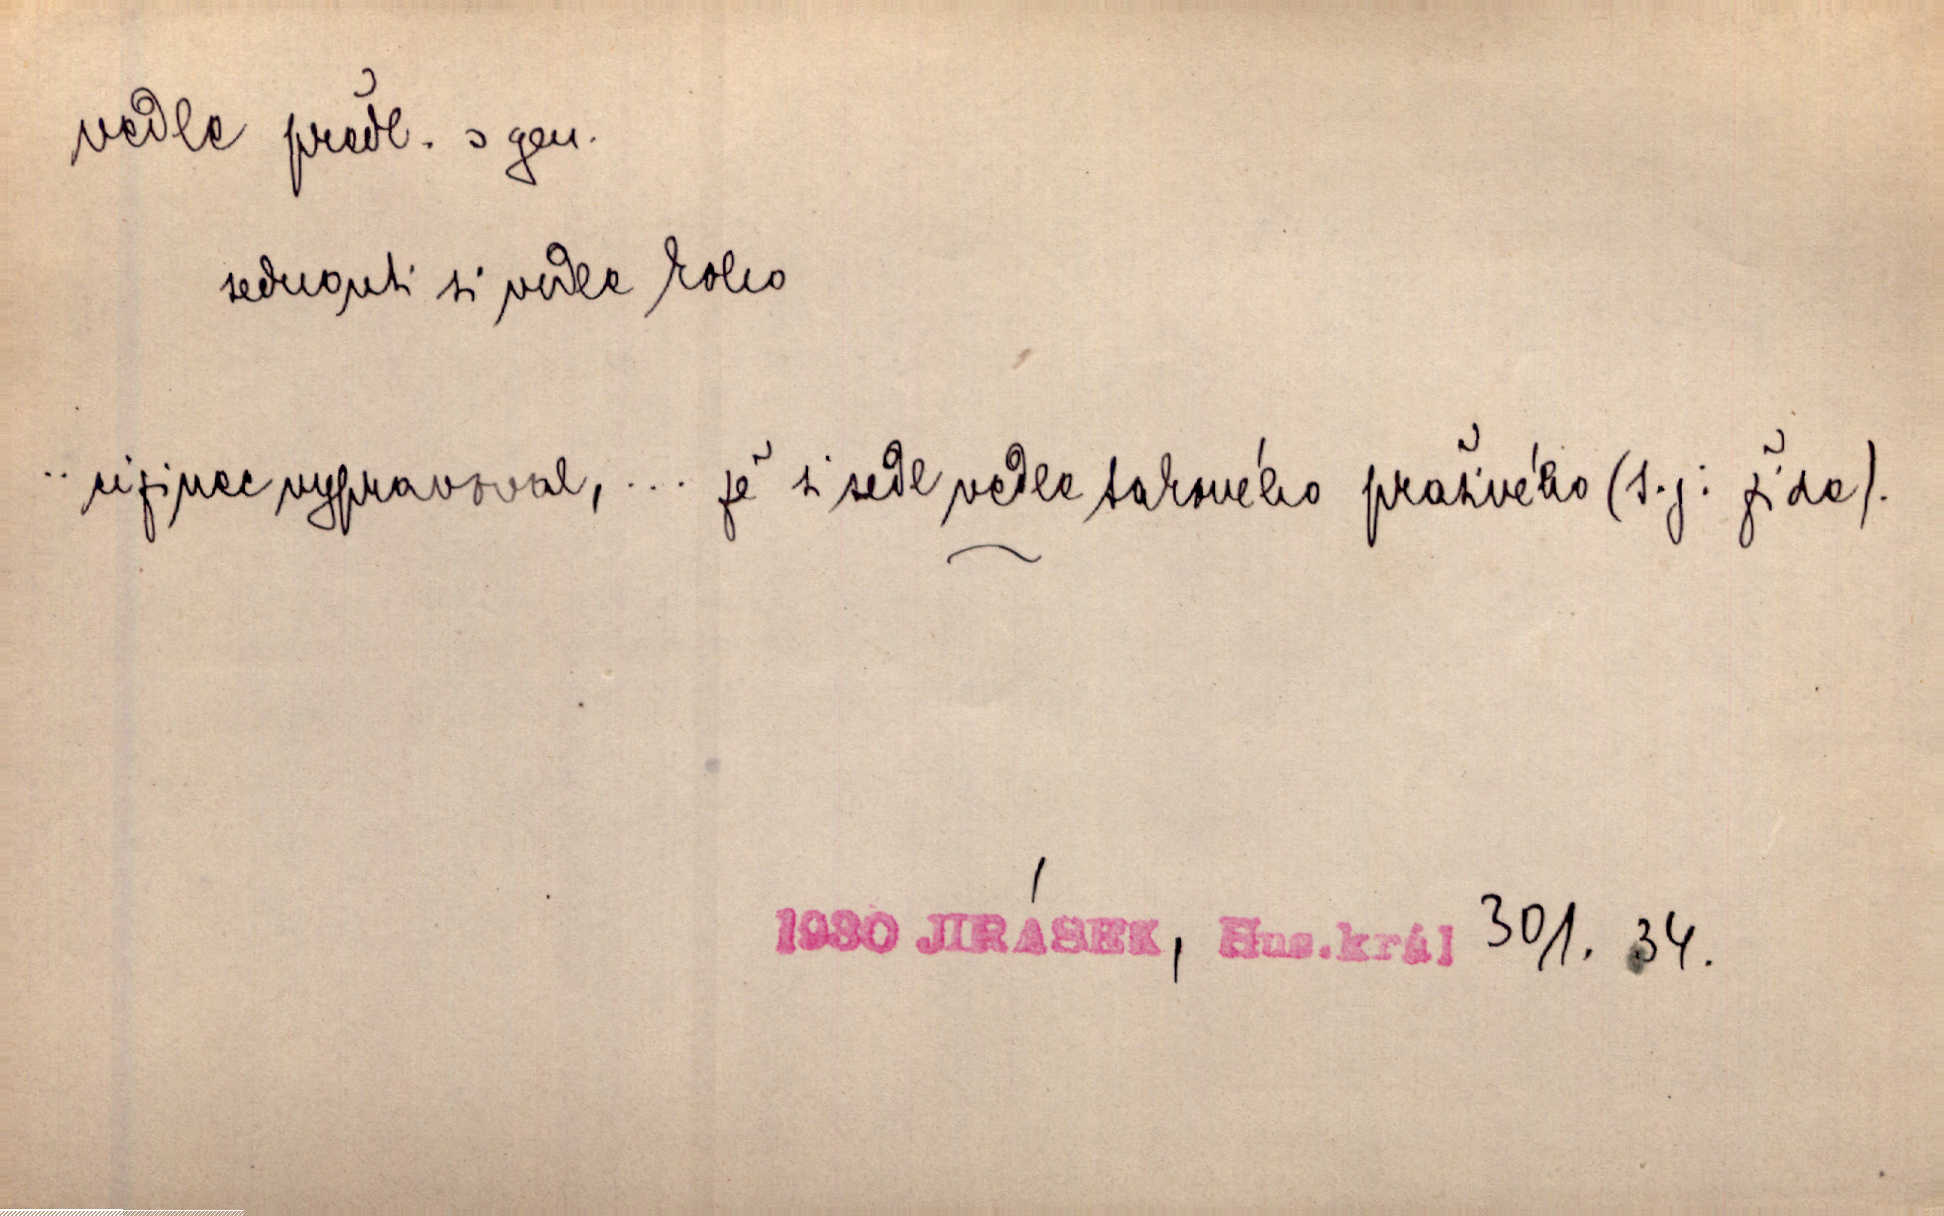 vedle předl. s gen.
sednouti si vedle koho
.. cizinec vypravoval, ... že si sedl vedle takového prašivého (t.j: žida).
1930 JIRÁSEK, Hus.král 30/1. 34.